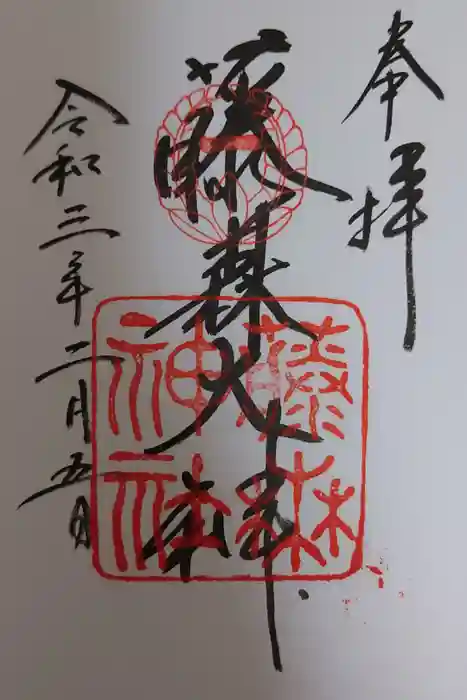 奉拝
藤森大神
令和三年二月五日
藤森
神社